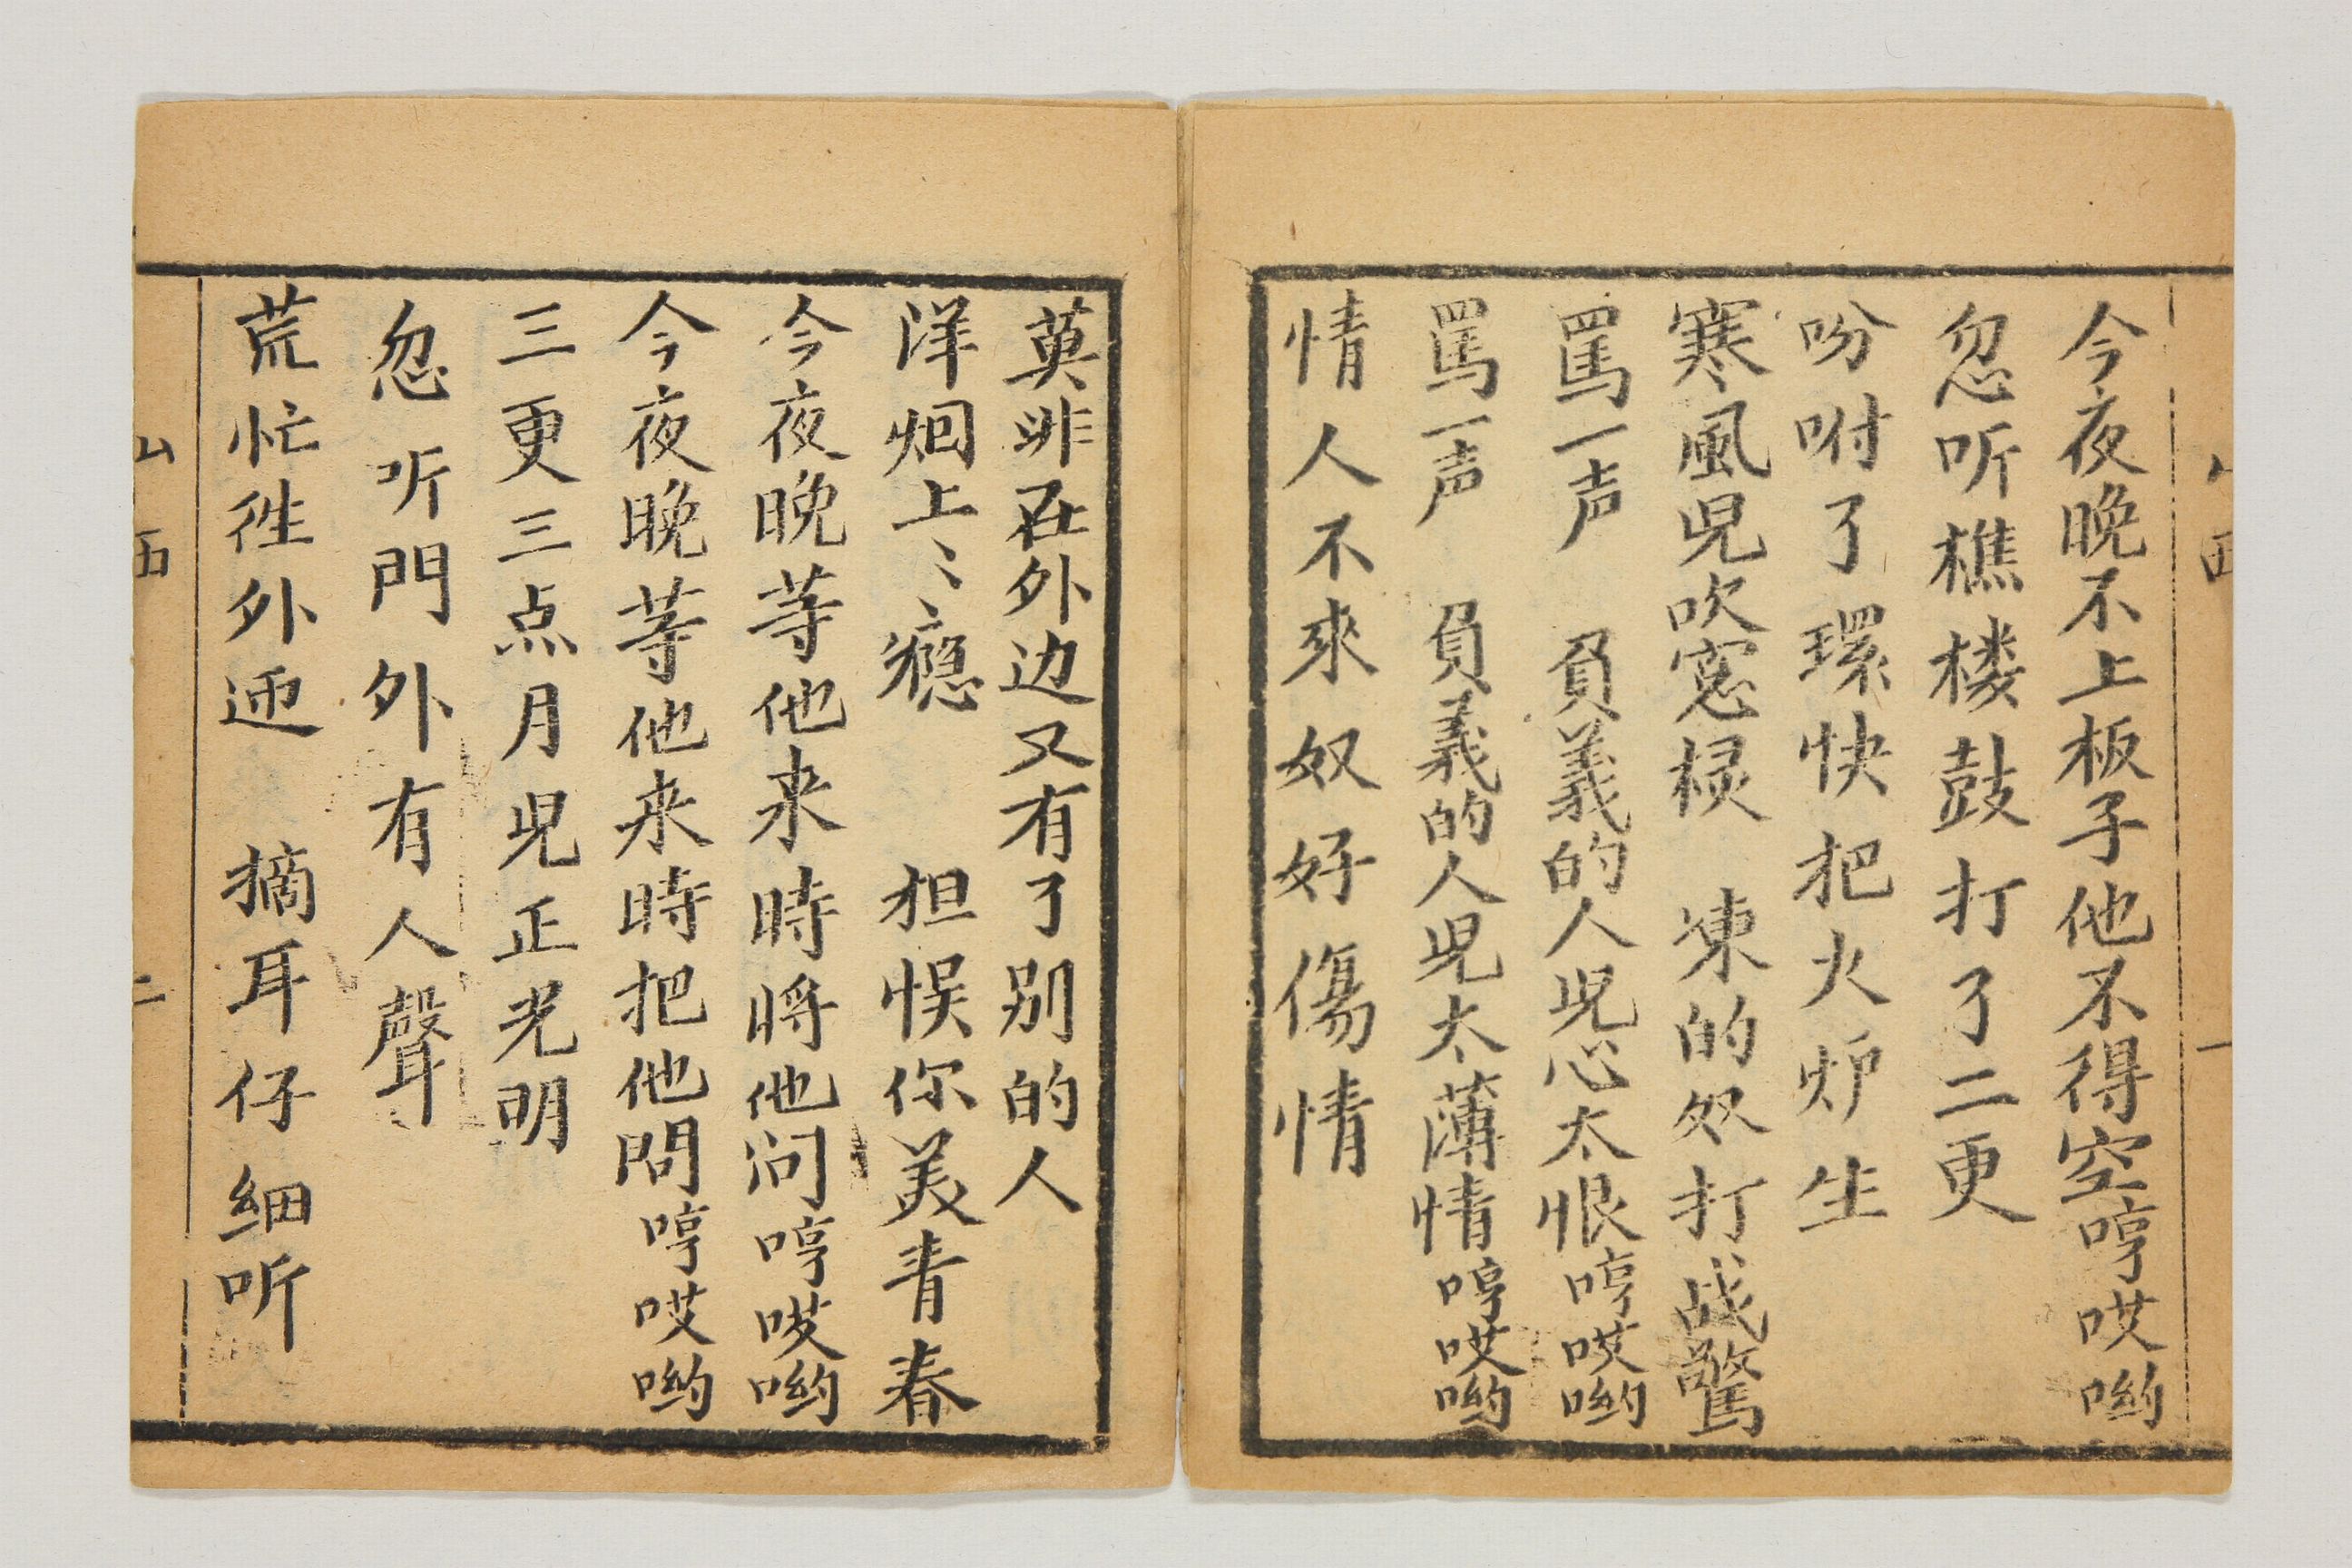 今夜晚不上板子他不得空哼哎哟
忽听樵楼鼓打了二更
吩咐了環快把火炉生
寒風児吹窓棂 凍的奴打战驚
罵一声 負義的人児心太恨哼哎哟
罵一声 負義的人児太薄情哼哎哟
情人不來奴好傷情
一
英非在外边又有了别的人
洋烟上〻癮 担悮你美青春
今夜晚等他来時将他问哼哎哟
今夜晚等他来時把他問哼哎哟
三更三点月児正光明
忽听門外有人聲
荒忙徃外迊 摘耳仔细听
二